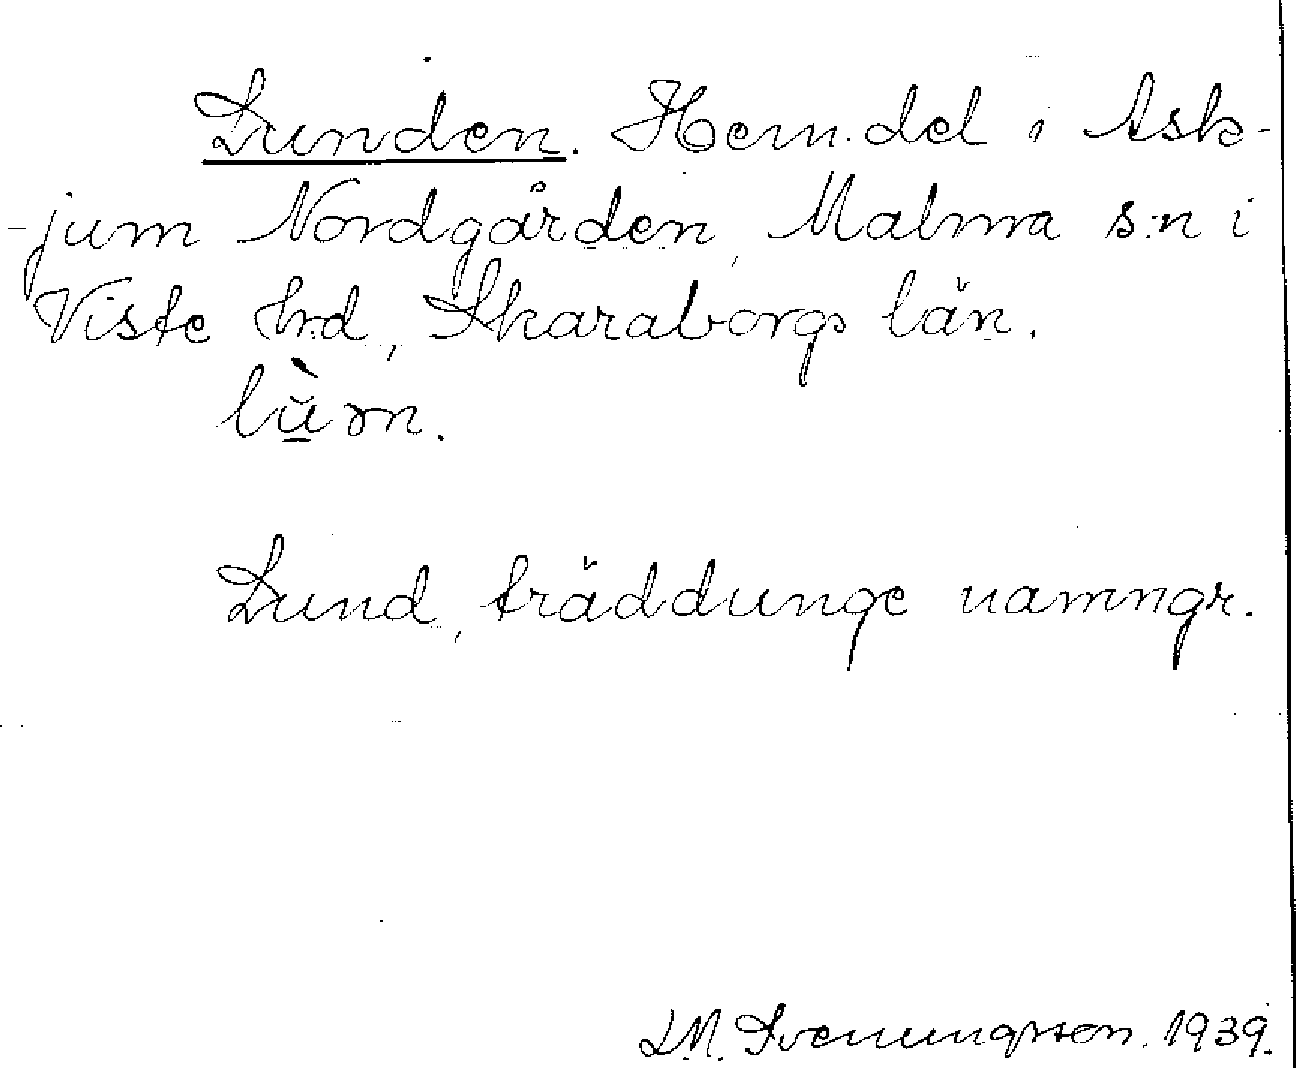 Lunden. Hem.del i Ask-
-jum Nordgården, Malma s:n i
Viste hrd, Skaraborgs län.
lùn.
Lund, träddunge namngr.
L.M. Svenungsson. 1939.